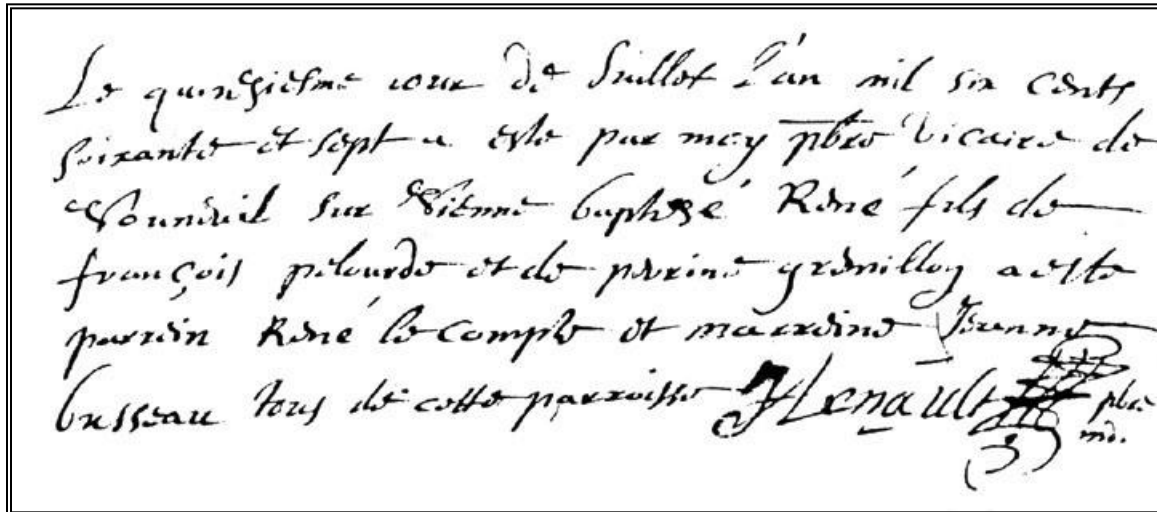 Le quinziesme jour de Juillet l'an mil six cents
soixante et sept a esté par moy pbre vicaire de
Vouneuil sur Vienne baptizé René fils de
françois pelourde et de perrine grenillon a esté
parrein René le Compte et marreine Jeanne
busseau tous de cette parroisse JLenault pbre